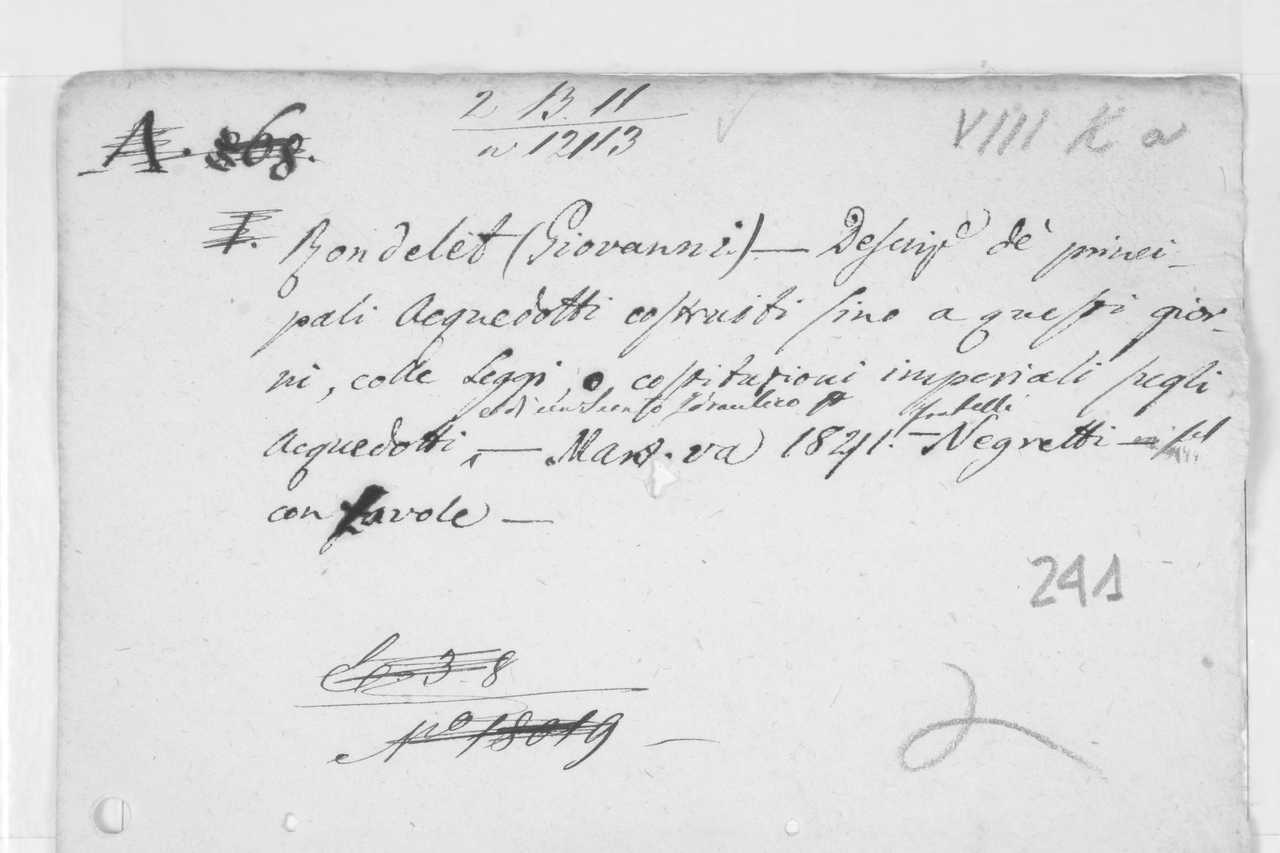 2 13. 11
n 12113
VIII K a
A. 868.
I. Rondelet (Giovanni) — Descrize de' princi-
pali Acquedotti costruiti sino a questi gior-
ni, colle Leggi, e costituzioni imperiali sugli
Idraulico
fratelli
Acquedotti — Mantova 1841. — Negretti —
con tavole —
241
3 8
No 18019 —
2